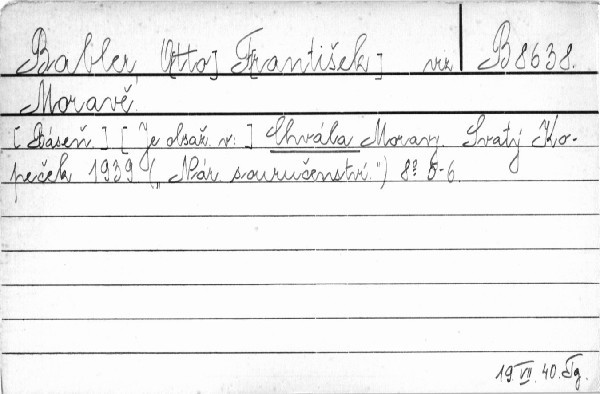 Babler, [Otto] František] viz B 8638.
Moravě.
[Báseň.] [Je obsaž. v:] Chvála Moravy. Svatý Ko-
peček 1939 („Nár. souručenství.") 8° 5-6.
19. VII. 40. Tg.